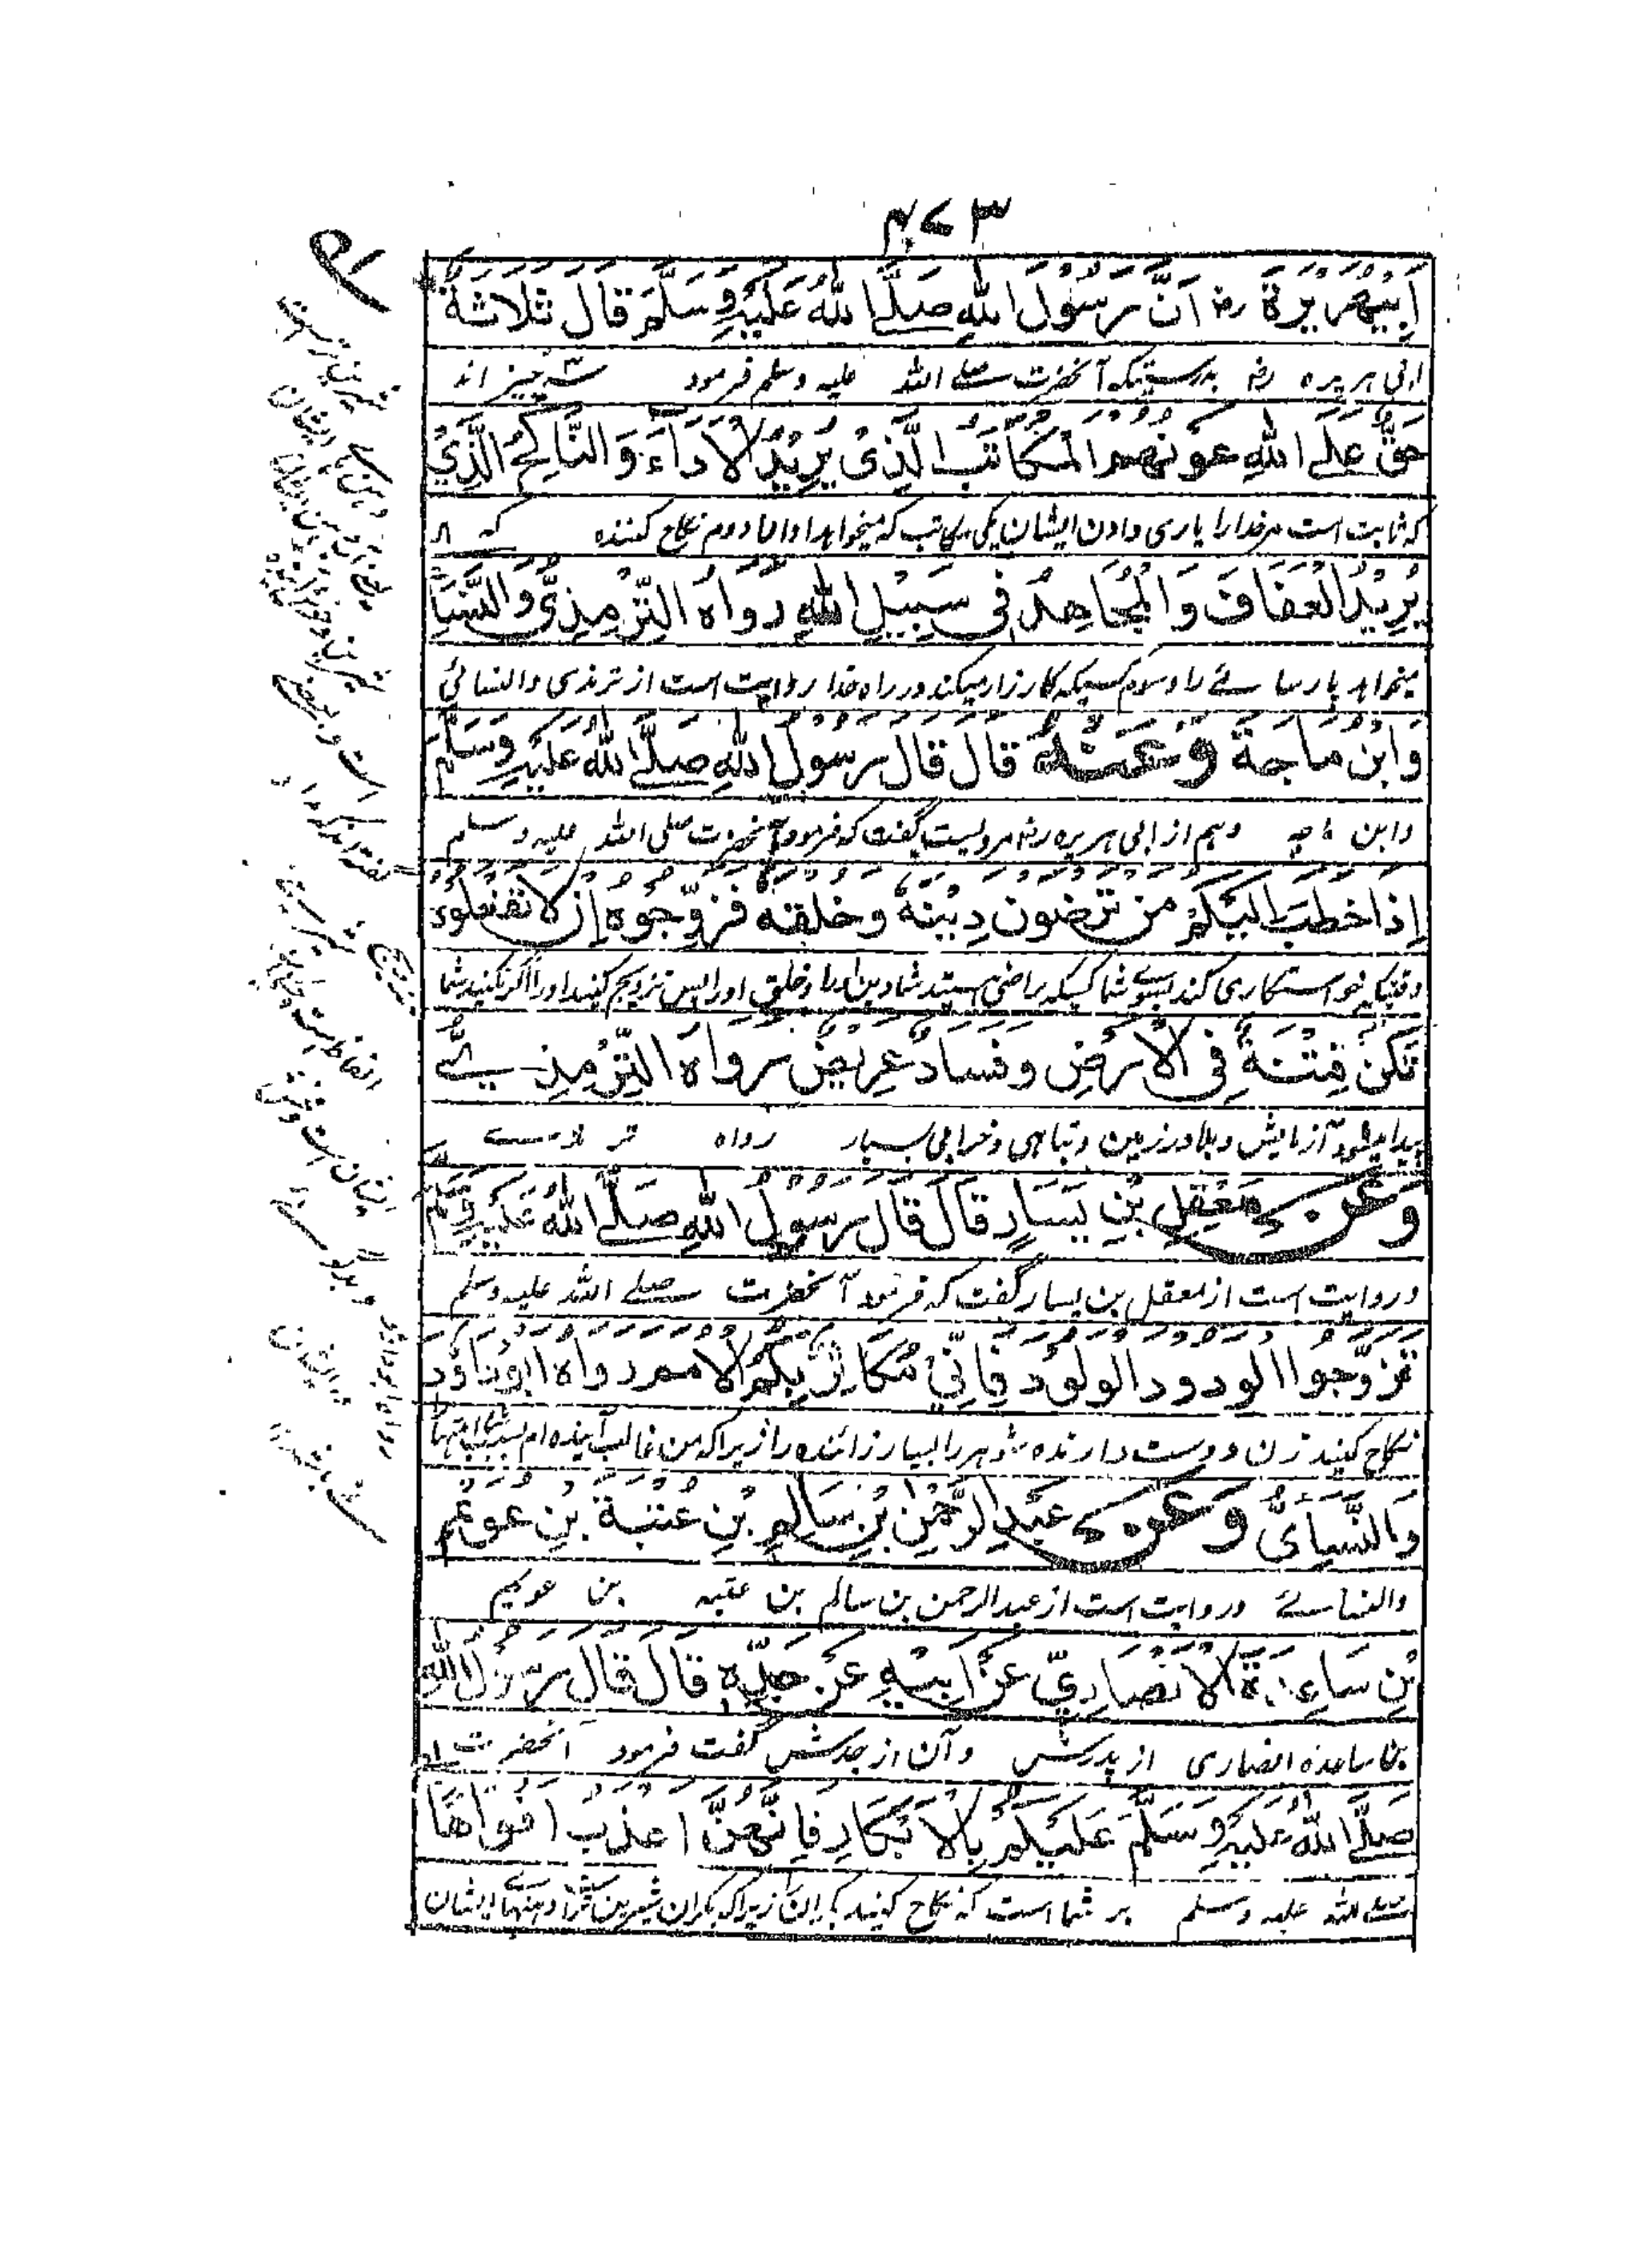 ۴۷۳
اَبِيْهُرَيْرَةَ رض اَنَّ رَسُوْلَ اللهِ صَلَّے اللهُ عَلَيْهِ وَسَلَّمَ قَالَ ثَلَاثَةٌ
ابی هریره رض بدرستیکه آنحضرت صلے الله علیه وسلم فرمود سه چیز اند
حَقٌّ عَلَے اللهِ عَوْنُهُمْ اَلْمُكَاتَبُ الَّذِیْ يُرِيْدُ الْاَدَاءَ وَالنَّاكِحُ الَّذِيْ
که ثابت است مر خدارا یاری دادن ایشان یکی مکاتب که میخواهد ادا را دوم نکاح کننده که
يُرِيْدُ الْعَفَافَ وَالْمُجَاهِدُ فِی سَبِيْلِ اللهِ رَوَاهُ التِّرْمِذِیُّ وَالنَّسَا
میخواهد پارسائے را و سوم کسیکه کارزار میکند در راه خدا روایت است از ترمذی والنسائی
وَابْنُ مَاجَةَ وَعَنْهُ قَالَ قَالَ رَسُوْلُ اللهِ صَلَّے اللهُ عَلَيْهِ وَسَلَّمَ
وابن ماجه وهم از ابی هریره رض مرویست گفت که فرمود آنحضرت صلی الله علیه وسلم
اِذَا خَطَبَ اِلَيْكُمْ مَنْ تَرْضَوْنَ دِيْنَهُ وَخُلُقَهُ فَزَوِّجُوْهُ اِنْ لَا تَفْعَلُوْهُ
وقتیکه خواستکاری کند بسوئے شما کسیکه راضی هستید شما دین او را و خلق او را پس تزویج کنید او را اگر نکنید شما
تَكُنْ فِتْنَةٌ فِی الْاَرْضِ وَفَسَادٌ عَرِيْضٌ رَوَاهُ التِّرْمِذِیُّ
پیدا میشود آزمایش و بلا در زمین و تباهی و خرابی بسیار رواه ترمذے
وَعَنْ مَعْقِلِ بْنِ يَسَارٍ قَالَ قَالَ رَسُوْلُ اللهِ صَلَّے اللهُ عَلَيْهِ وَسَلَّمَ
و روایت است از معقل بن یسار گفت که فرمود آنحضرت صلے الله علیه وسلم
تَزَوَّجُوا الْوَدُوْدَ الْوَلُوْدَ فَاِنِّیْ مُكَاثِرٌ بِكُمُ الْاُمَمَ رَوَاهُ اَبُوْدَاؤُدَ
نکاح کنید زن دوست دارنده شوهر را بسیار زائنده را زیراکه من غالب آینده ام بسبب شما امتها
وَالنَّسَائِیُّ وَعَنْ عَبْدِ الرَّحْمٰنِ بْنِ سَالِمِ بْنِ عُتْبَةَ بْنِ عُوَيْمِ
والنسائے و روایت است از عبدالرحمن بن سالم بن عتبه بن عویم
بْنِ سَاعِدَةَ الْاَنْصَارِيِّ عَنْ اَبِيْهِ عَنْ جَدِّهِ قَالَ قَالَ رَسُوْلُ اللهِ
بن ساعده انصاری از پدرش و آن از جدش گفت فرمود آنحضرت
صَلَّے اللهُ عَلَيْهِ وَسَلَّمَ عَلَيْكُمْ بِالْاَبْكَارِ فَاِنَّهُنَّ اَعْذَبُ اَفْوَاهًا
صلے الله علیه وسلم بر شما است که نکاح کنید بکران را زیراکه بکران شیرین تر اند دهنهائے ایشان